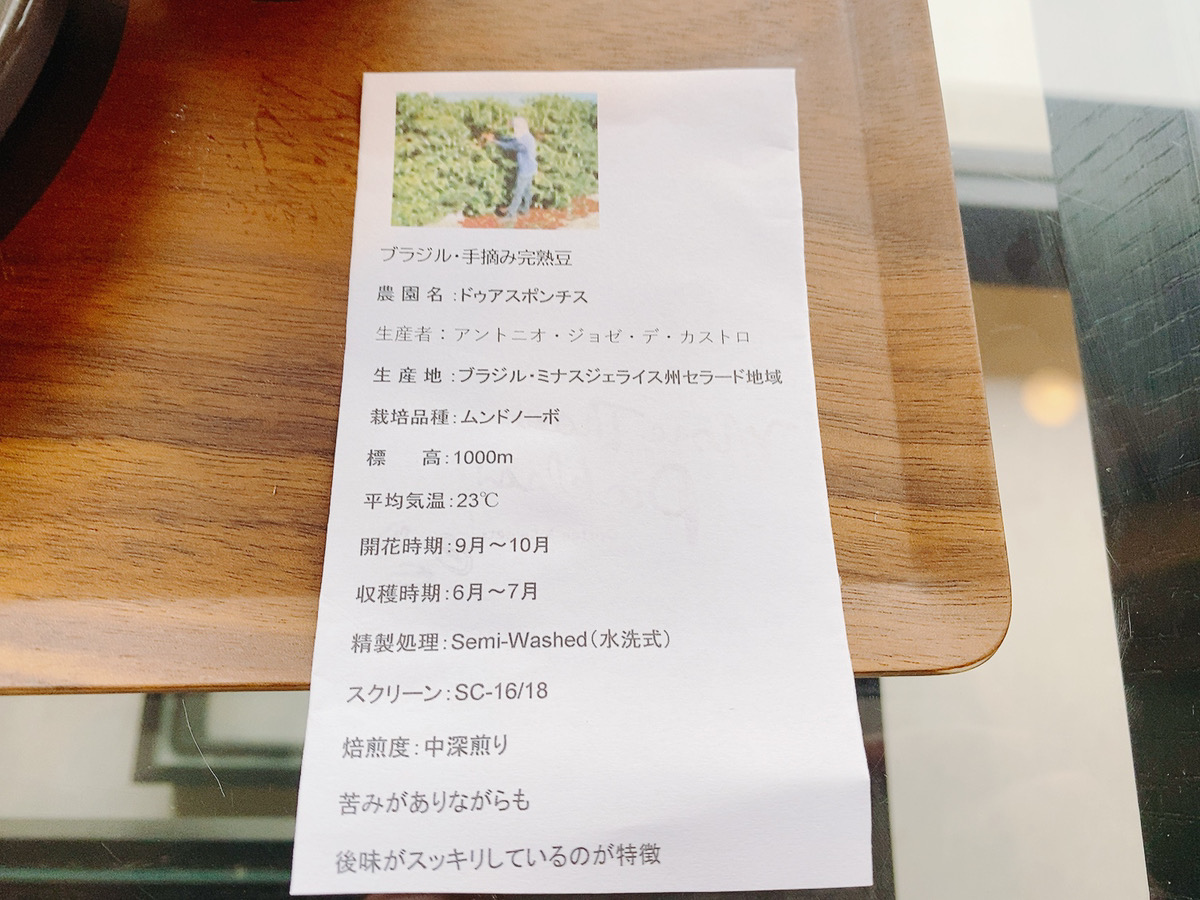 ブラジル・手摘み完熟豆
農 園 名 :ドゥアスポンチス
生産者：アントニオ・ジョゼ・デ・カストロ
生 産 地 :ブラジル・ミナスジェライス州セラード地域
栽培品種:ムンドノーボ
標　　高:1000m
平均気温:23℃
開花時期:9月～10月
収穫時期:6月～7月
精製処理:Semi-Washed(水洗式)
スクリーン:SC-16/18
焙煎度:中深煎り
苦みがありながらも
後味がスッキリしているのが特徴